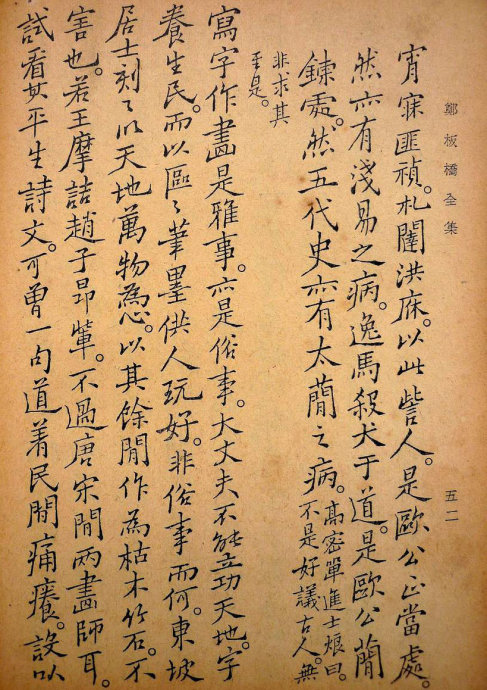 鄭板橋全集
五二
宵寐匪禎。札闥洪庥。以此訾人。是歐公正當處。
然亦有淺易之病。逸馬殺犬于道。是歐公簡
鍊處。然五代史亦有太簡之病。
高密單進士烺曰。
不是好議古人。無
非求其
至是。
寫字作畫是雅事。亦是俗事。大丈夫不能立功天地。字
養生民。而以區〻筆墨供人玩好。非俗事而何。東坡
居士刻〻以天地萬物為心。以其餘閒作為枯木竹石。不
害也。若王摩詰趙子昂輩。不過唐宋間兩畫師耳。
試看其平生詩文。可曾一句道着民間痛癢。設以